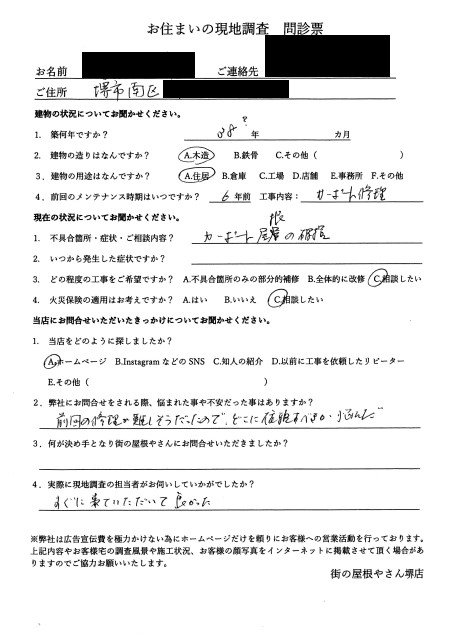 お住まいの現地調査 問診票
お名前 ご連絡先
ご住所 堺市南区
建物の状況についてお聞かせください。
1. 築何年ですか? 38? 年 カ月
2. 建物の造りはなんですか? A.木造 B.鉄骨 C.その他( )
3. 建物の用途はなんですか? A.住居 B.倉庫 C.工場 D.店舗 E.事務所 F.その他
4. 前回のメンテナンス時期はいつですか? 6 年前 工事内容: カーポート修理
現在の状況についてお聞かせください。
1. 不具合箇所・症状・ご相談内容? カーポート屋根の破損
2. いつから発生した症状ですか?
3. どの程度の工事をご希望ですか? A.不具合箇所のみの部分的補修 B.全体的に改修 C.相談したい
4. 火災保険の適用はお考えですか? A.はい B.いいえ C.相談したい
当店にお問合せいただいたきっかけについてお聞かせください。
1. 当店をどのように探しましたか?
A.ホームページ B.Instagram などの SNS C.知人の紹介 D.以前に工事を依頼したリピーター
E.その他( )
2. 弊社にお問合せをされる際、悩まれた事や不安だった事はありますか?
前回の修理が難しそうだったので、どこに依頼すべきか悩んだ
3. 何が決め手となり街の屋根やさんにお問合せいただきましたか?
4. 実際に現地調査の担当者がお伺いしていかがでしたか?
すぐに来ていただいて良かった
※弊社は広告宣伝費を極力かけない為にホームページだけを頼りにお客様への営業活動を行っております。
上記内容やお客様宅の調査風景や施工状況、お客様の顔写真をインターネットに掲載させて頂く場合があ
りますのでご協力お願いいたします。
街の屋根やさん堺店